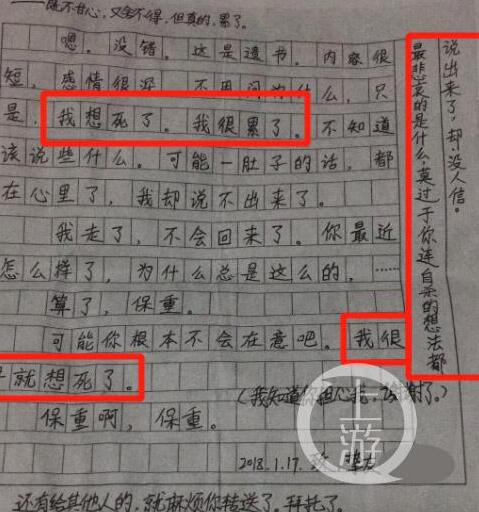 既不甘心，又舍不得，但真的，累了。
嗯。没错。这是遗书。内容很
短，感情很深，不用问为什么，只
是，我想死了。我很累了。不知道
该说些什么。可能一肚子的话，都
在心里了，我却说不出来了。
我走了，不会回来了。你最近
怎么样了，为什么总是这么的，……
算了，保重。
可能你根本不会在意吧。我很
就想死了。
(我知道你担心我，谢谢了。)
保重啊，保重。
2018.1.17.
还有给其他人的，就麻烦你转送了。拜托了。
最悲哀的是什么，莫过于你连自杀的想法都
说出来了，却没人信。
上游